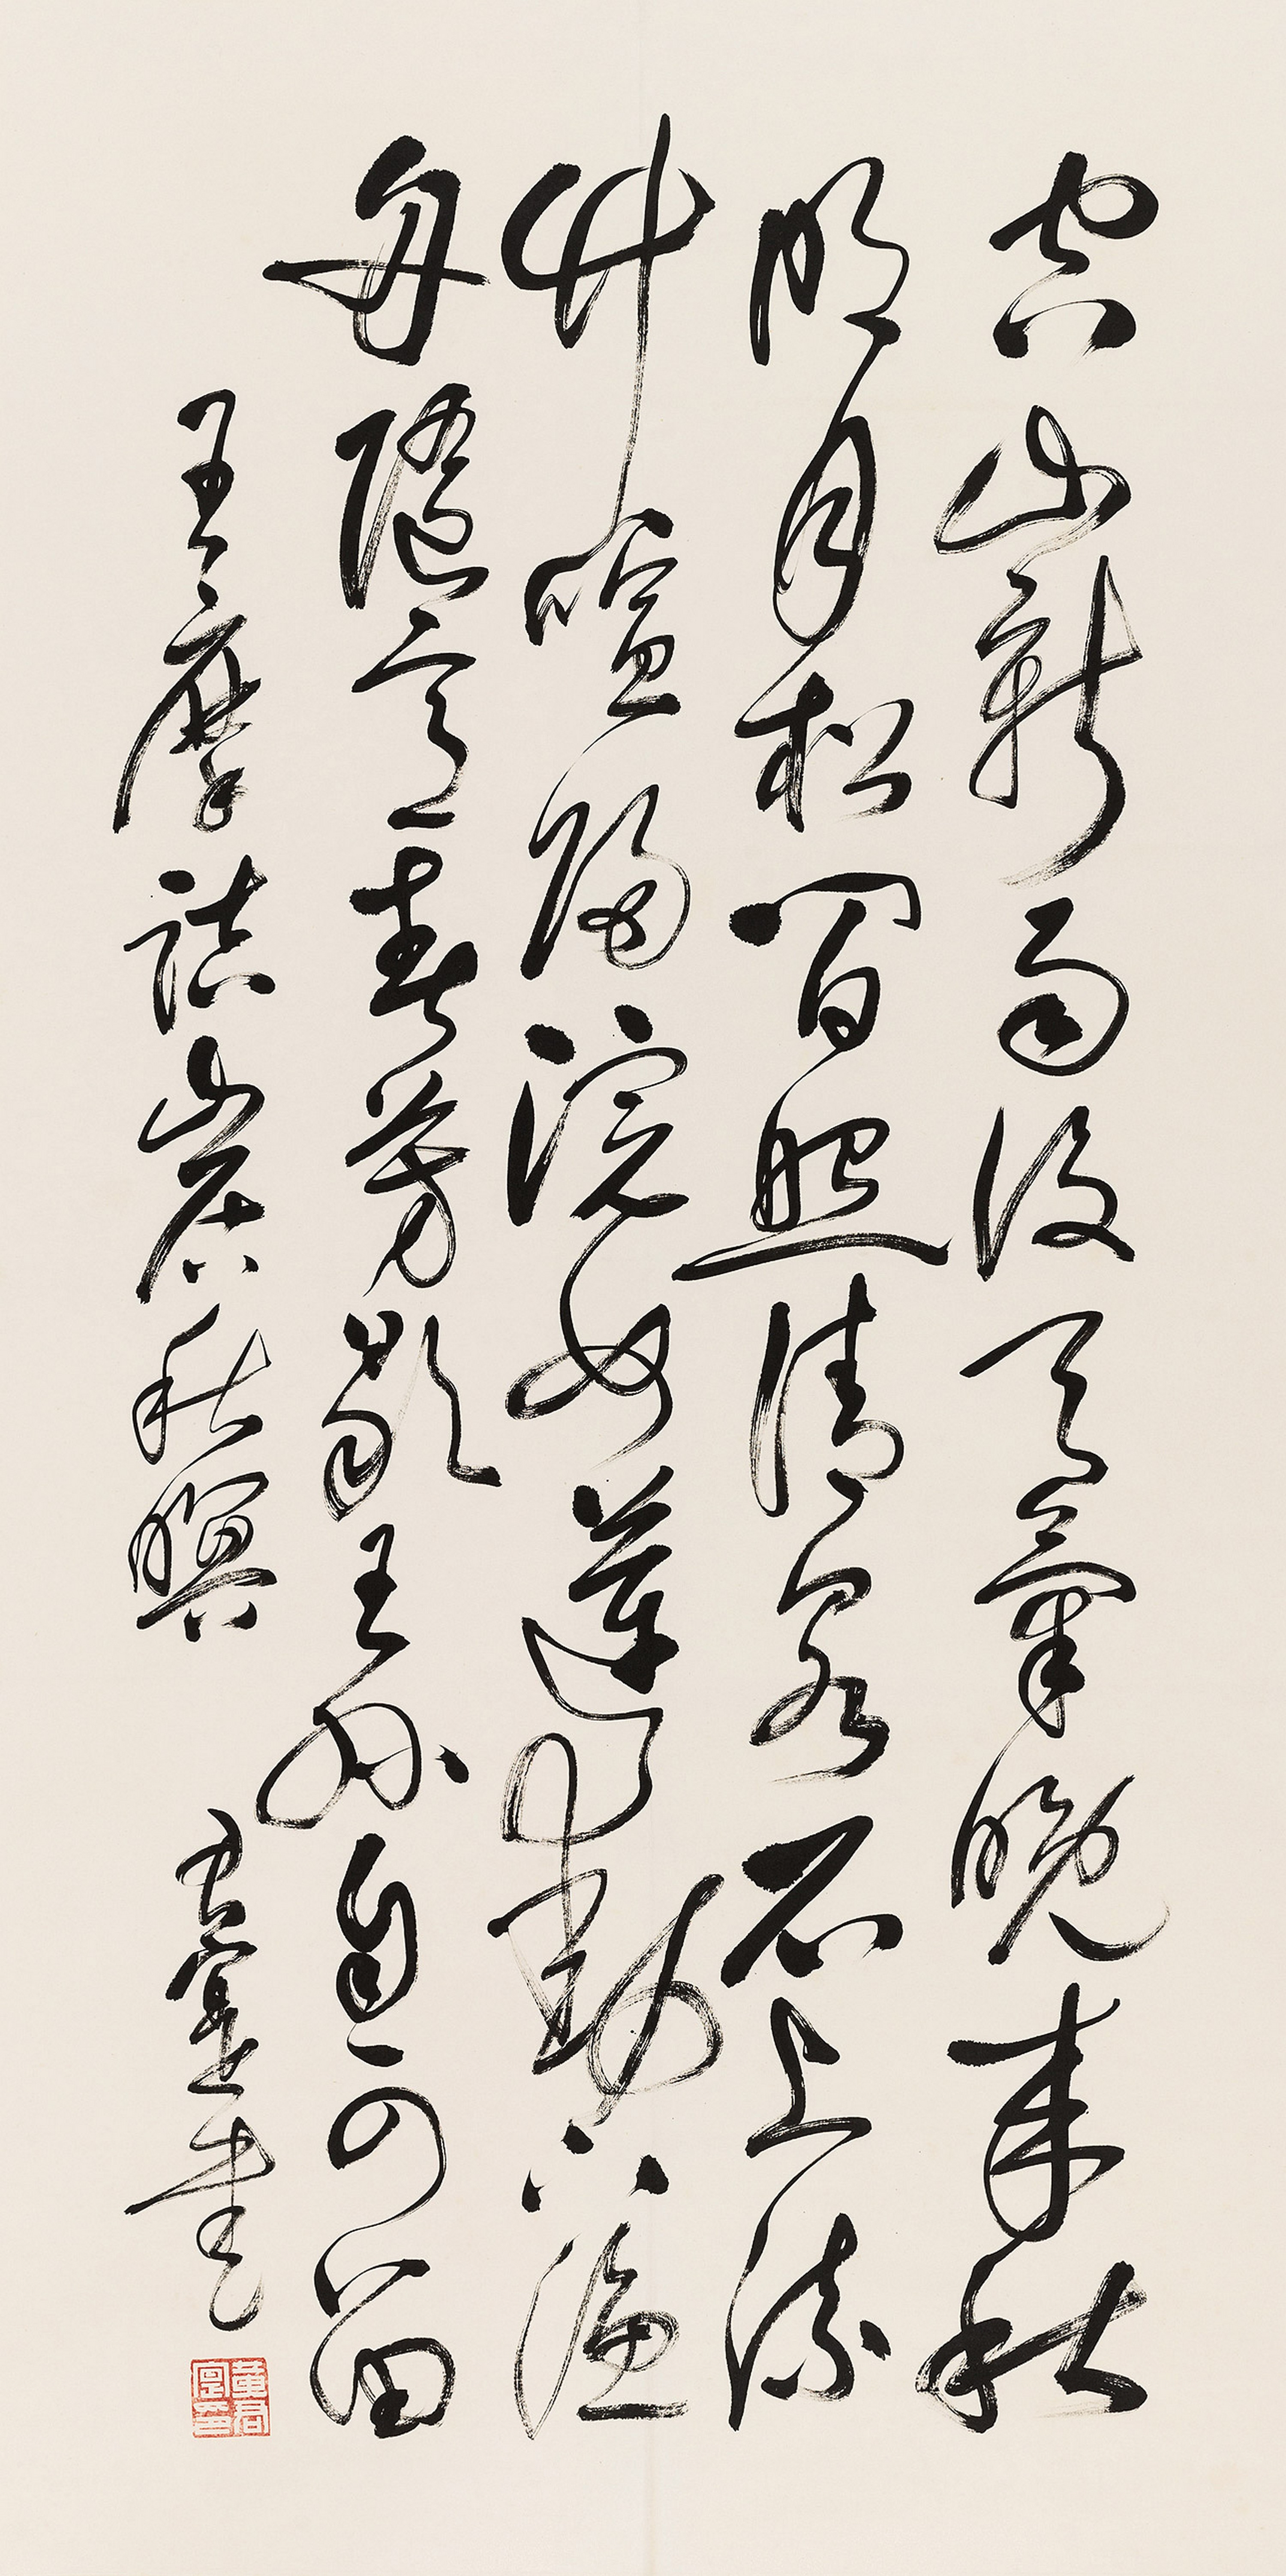 空山新雨後天氣晚來秋
明月松間照清泉石上流
竹喧歸浣女蓮動下漁
舟隨意春芳歇王孫自可留
王摩詰山居秋暝 書